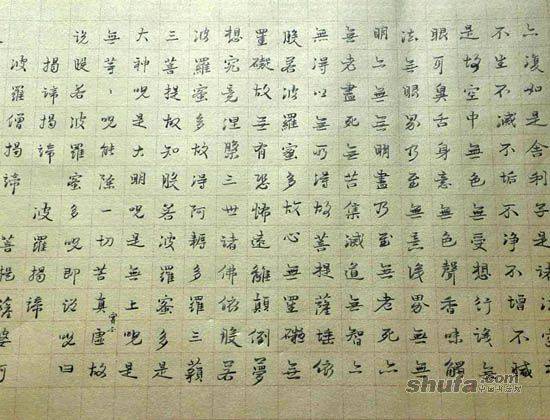 亦復如是舍利子是諸法空
不生不滅不垢不淨不增不減
是故空中無色無受想行識無
眼耳鼻舌身意無色聲香味觸
法無眼界乃至無意識界無無
明亦無無明盡乃至無老死亦
無老盡死無苦集滅道無智亦
無得以無所得故菩提薩埵依
般若波羅蜜多故心無罣礙無
罣礙故無有恐怖遠離顛倒夢
想究竟涅槃三世諸佛依般若
波羅蜜多故得阿耨多羅三藐
三菩提故知般若波羅蜜多是
大神咒是大明咒是無上咒是
無等等咒能除一切苦真實不虛故
說般若波羅蜜多咒即說咒曰
揭諦揭諦 波羅揭諦
波羅僧揭諦 菩提薩婆訶
shufa.com